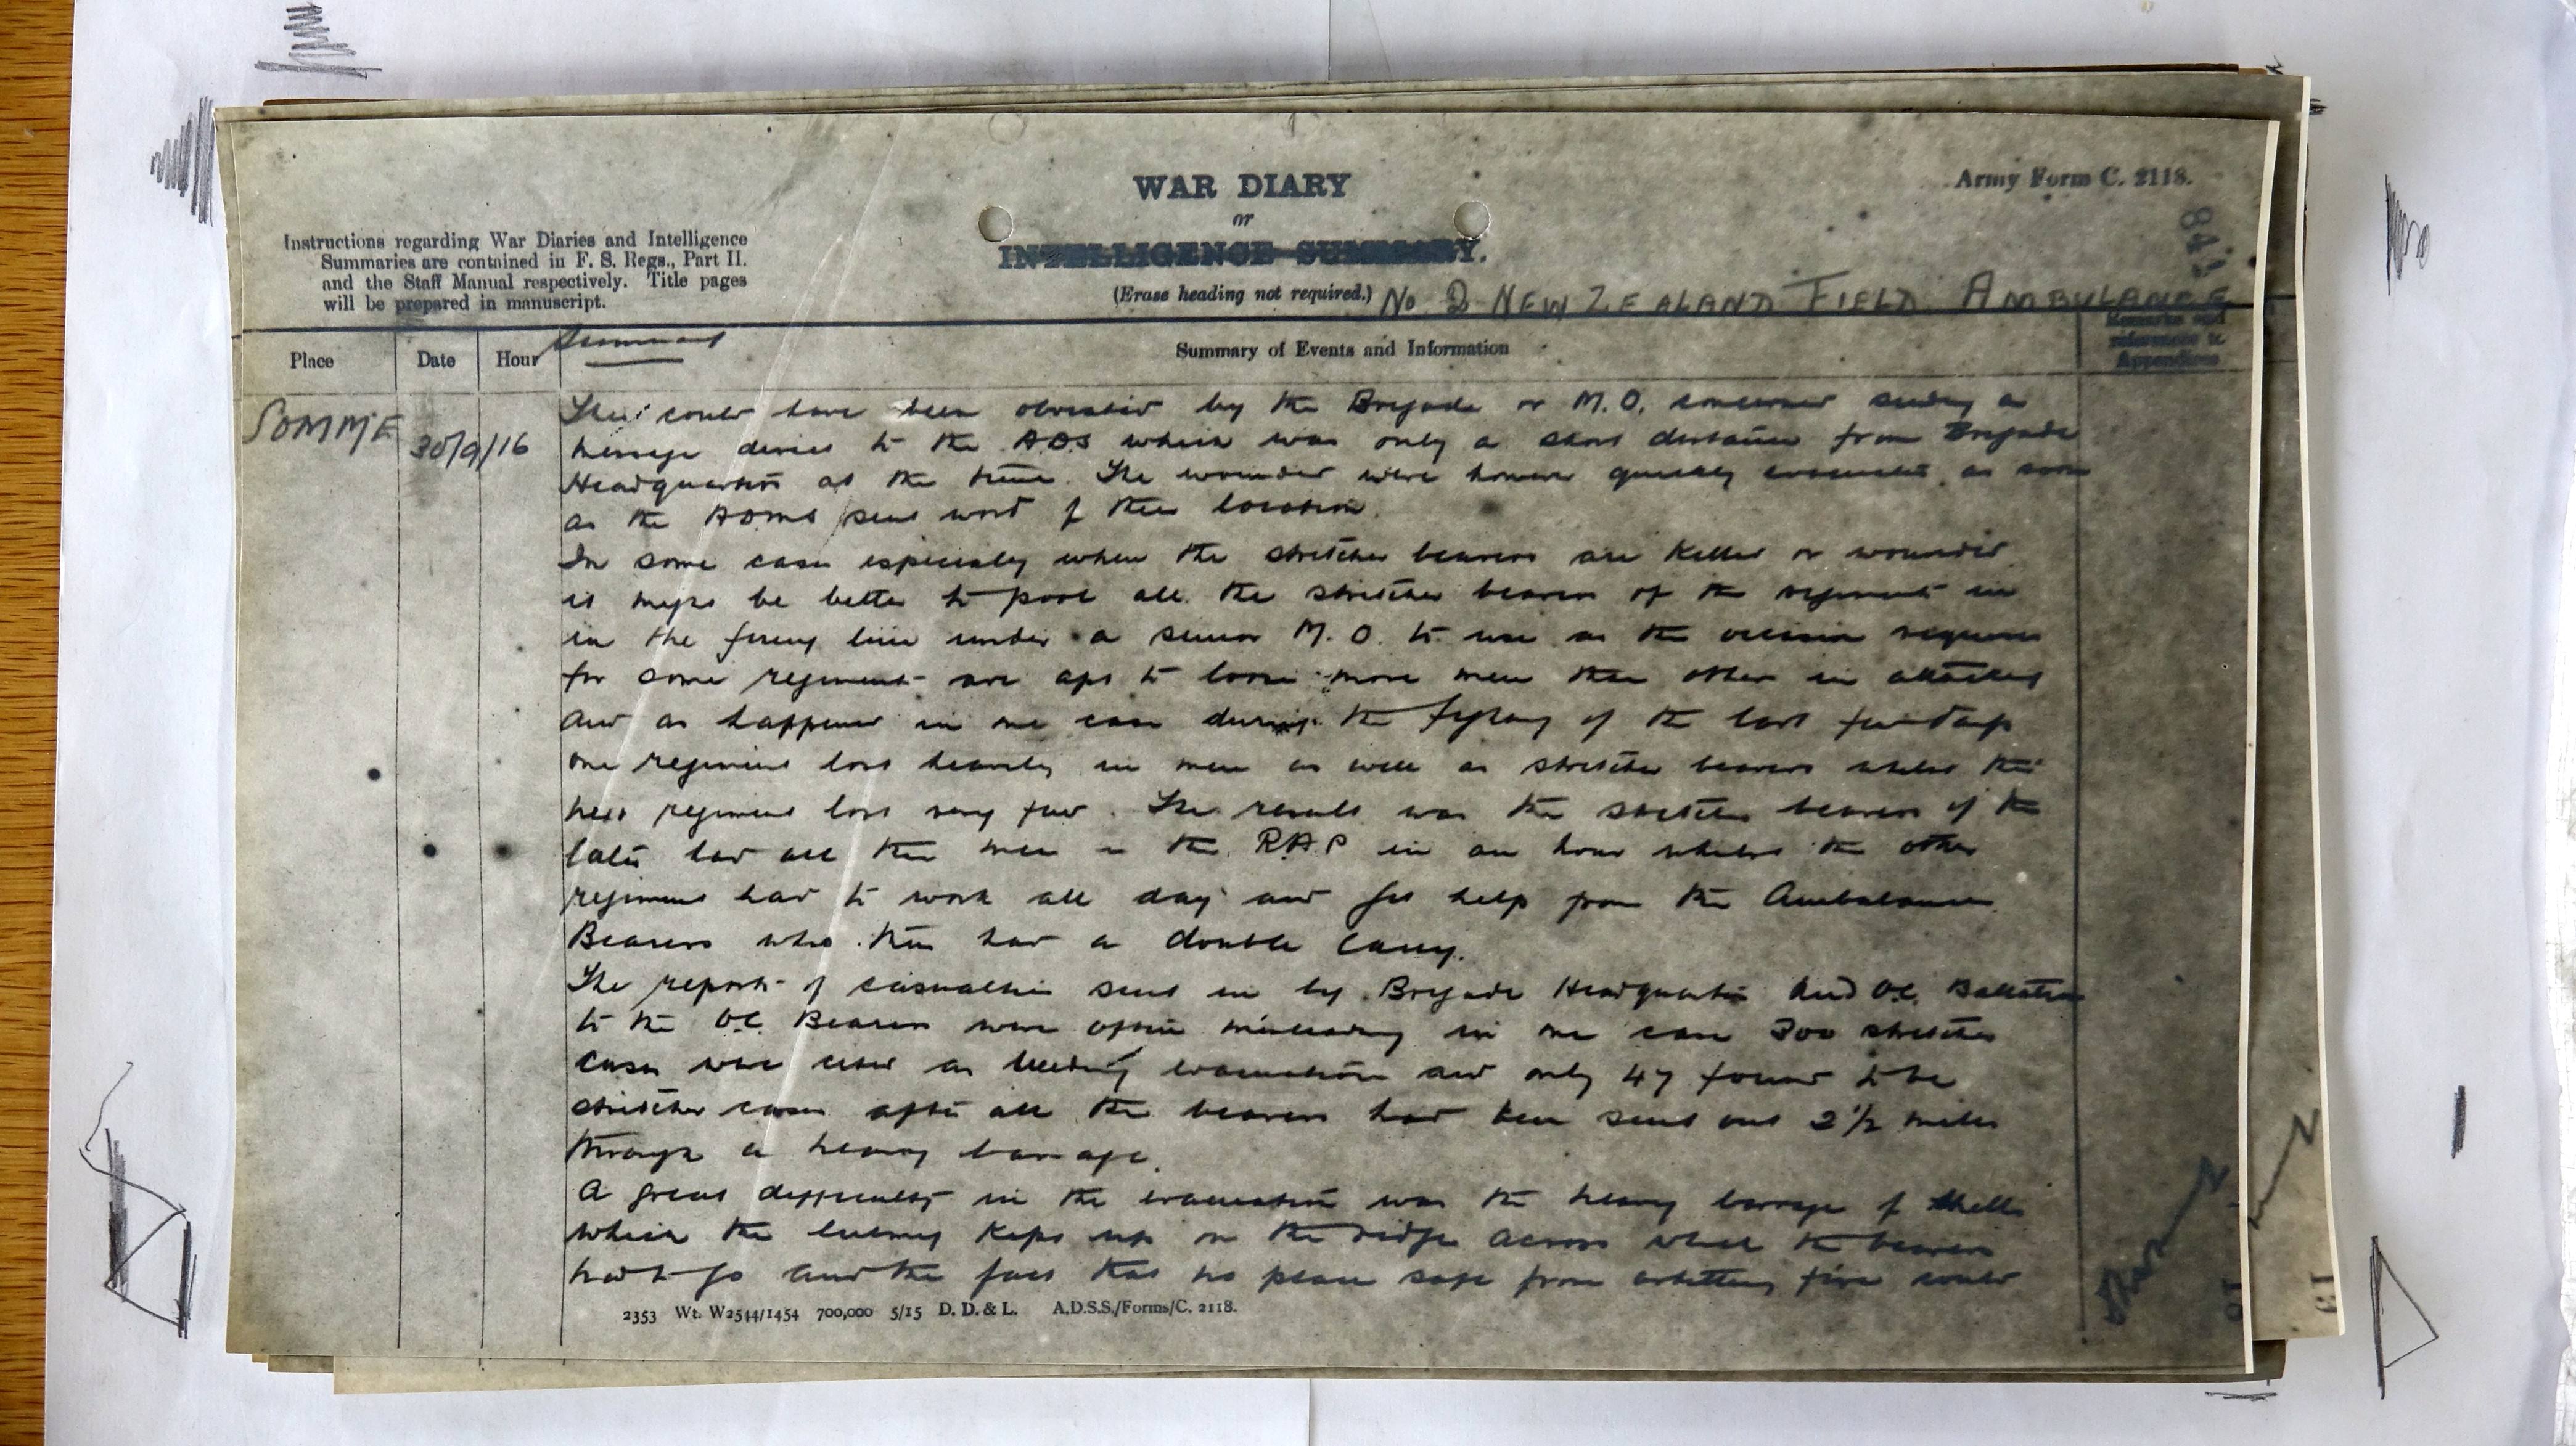 WAR DIARY
or
INTELLIGENCE SUMMARY.
(Erase heading not required.) No 2 NEW ZEALAND FIELD AMBULANCE
Army Form C. 2118.
Instructions regarding War Diaries and Intelligence
Summaries are contained in F. S. Regs., Part II.
and the Staff Manual respectively. Title pages
will be prepared in manuscript.
Place
Date
Hour
Summary
Summary of Events and Information
Remarks and
references to
Appendices
SOMME
30/9/16
This could have been obviated by the Brigade or M.O. concerned sending a
message direct to the A.D.S which was only a short distance from Brigade
Headquarters at the time. The wounded were however quickly evacuated as soon
as the ADMS sent word of their location.
In some cases especially when the stretcher bearers are killed or wounded
it might be better to pool all the stretcher bearers of the regiments in
in the firing line under a senior M.O. to use as the occasion requires
for some regiments are apt to loose more men than others in attacking
and as happened in one case during the fighting of the last few days
one regiment lost heavily in men as well as stretcher bearers whilst the
next regiment lost very few. The result was the stretcher bearers of the
latter had all their men in the R.A.P in an hour whilst the other
regiment had to work all day and get help from the Ambulance
Bearers who thus had a double carry.
The reports of casualties sent in by Brigade Headquarters and O.C. Battalion
to the O.C. Bearers were often misleading in one case 300 stretcher
cases were as needing evacuation and only 47 found to be
stretcher cases after all the bearers had been sent out 2 1/2 miles
through a heavy barrage.
A great difficulty in the evacuation was the heavy barrage of shells
which the enemy kept up on the ridge across which the bearers
had to go and the fact that no place safe from artillery fire could
2353 Wt. W2544/1454 700,000 5/15 D. D. & L. A.D.S.S./Forms/C. 2118.